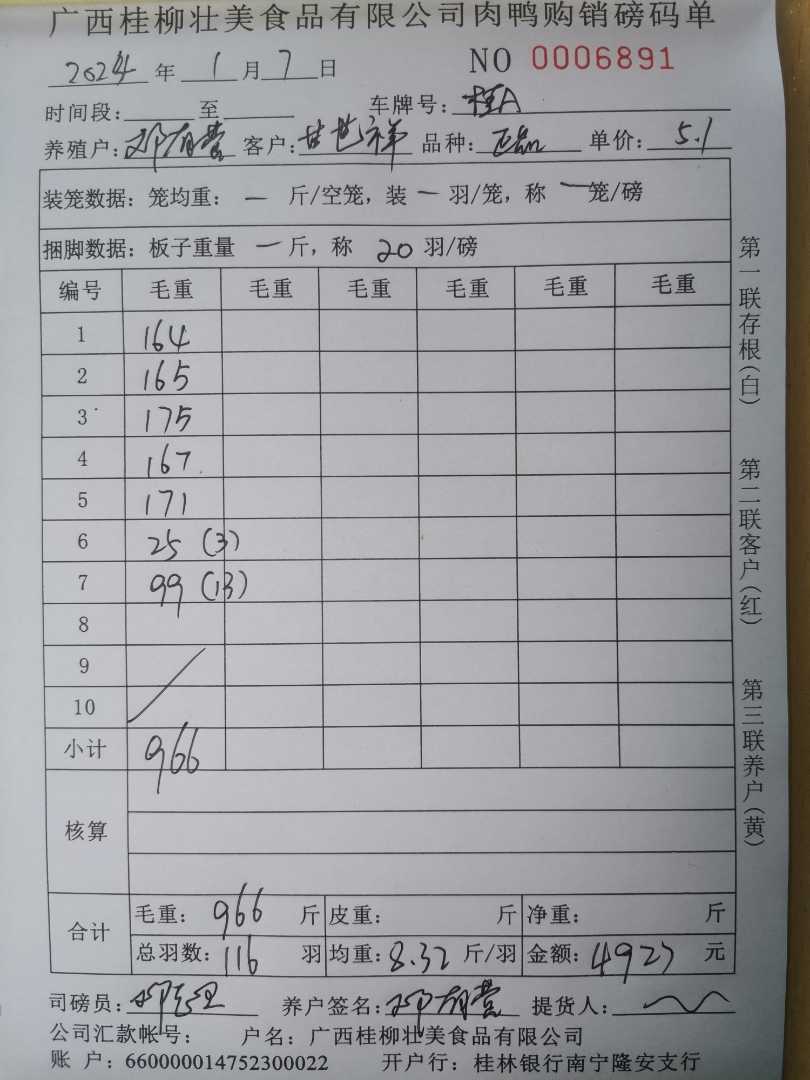 广西桂柳壮美食品有限公司肉鸭购销磅码单
2024 年 1 月 7 日 NO 0006891
时间段: 至 车牌号: 桂A
养殖户: 邓有营 客户: 甘世祥 品种: 正品 单价: 5.1
装笼数据: 笼均重: — 斤/空笼, 装 — 羽/笼, 称 — 笼/磅
捆脚数据: 板子重量 — 斤, 称 20 羽/磅
编号 毛重 毛重 毛重 毛重 毛重 毛重
1 164
2 165
3 175
4 167
5 171
6 25 (3)
7 99 (13)
8
9
10
小计 966
核算
合计 毛重: 966 斤 皮重: 斤 净重: 斤
总羽数: 116 羽 均重: 8.32 斤/羽 金额: 4927 元
司磅员: 养户签名: 邓有营 提货人:
公司汇款帐号: 户名: 广西桂柳壮美食品有限公司
账 户: 660000014752300022 开户行: 桂林银行南宁隆安支行
第一联存根(白) 第二联客户(红) 第三联养户(黄)